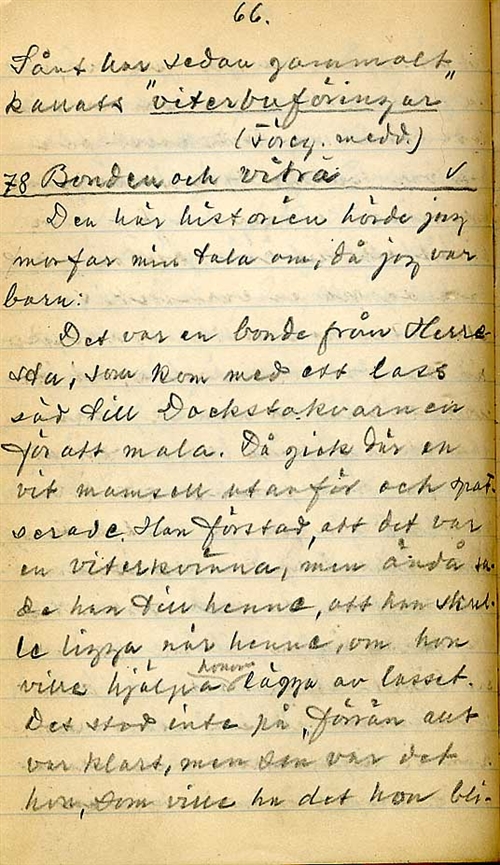 66.
Sånt har sedan gammalt
kallats "viterbuföringar"
(Föreg. medd.)
78 Bonden och vitra ✓
Den här historien hörde jag
morfar min tala om, då jag var
barn:
Det var en bonde från Herre-
sta, som kom med ett lass
säd till Dockstakvarnen
för att mala. Då gick där en
vit mamsell utanför och spat-
serade. Han förstod, att det var
en viterkvinna, men ändå sa-
de han till henne, att han skul-
le ligga när henne, om hon
ville hjälpa honom lägga av lasset.
Det stod inte på, förrän allt
var klart, men sen var det
hon, som ville ha det hon bli-